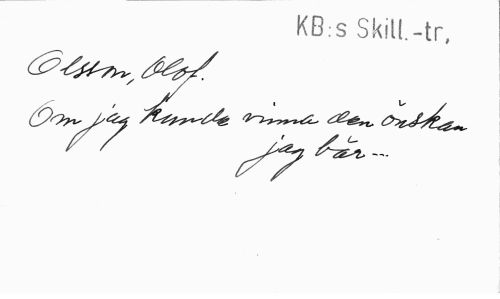 KB:s Skill.-tr,
Olsson, Olof.
Om jag kunde vinna den önskan
jag bär---